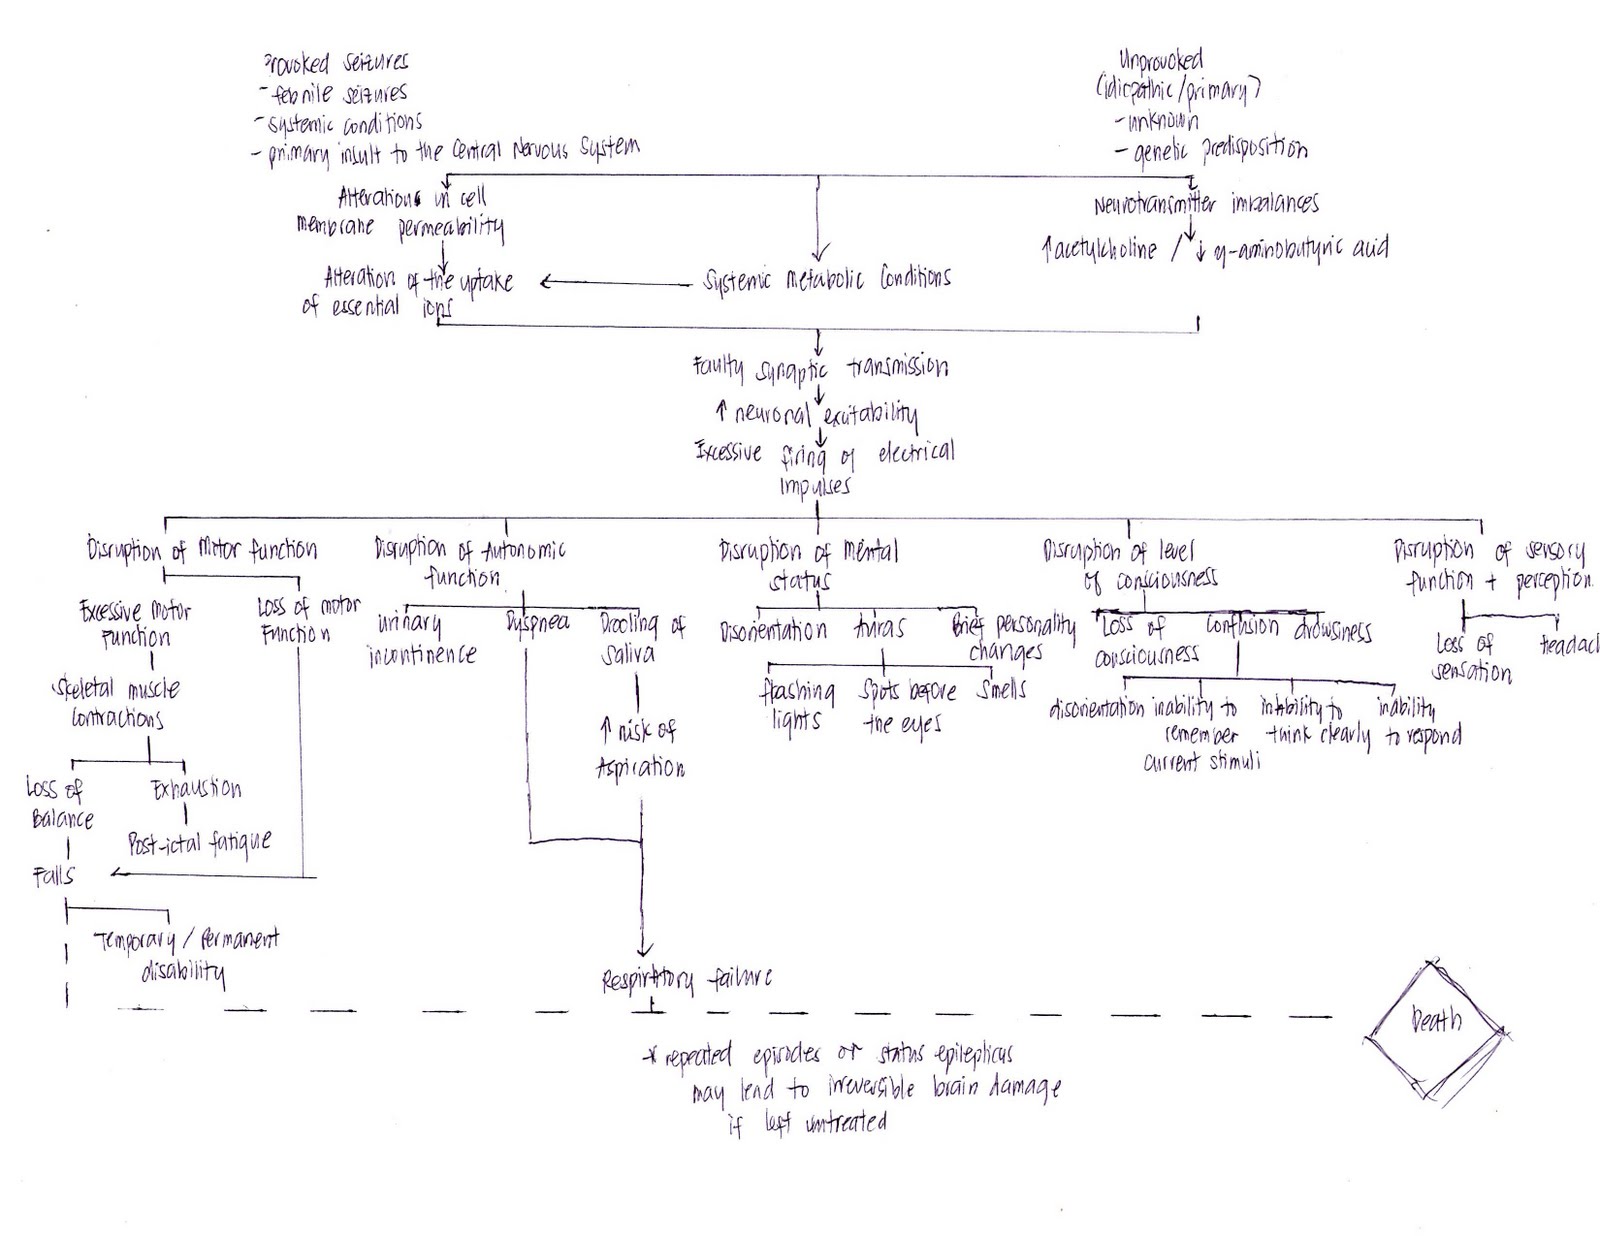 Provoked seizures
- febrile seizures
- systemic conditions
- primary insult to the Central Nervous System
Unprovoked
(idiopathic/primary)
- unknown
- genetic predisposition
Alterations in cell
membrane permeability
Neurotransmitter imbalances
↑acetylcholine / ↓ y-aminobutyric acid
Alteration of the uptake
of essential ions
Systemic Metabolic Conditions
Faulty synaptic transmission
↑ neuronal excitability
Excessive firing of electrical
impulses
Disruption of Motor function
Disruption of Autonomic
function
Disruption of mental
status
Disruption of level
of consciousness
Disruption of sensory
function + perception
Excessive motor
function
Loss of motor
Function
urinary
incontinence
Dyspnea
Drooling of
Saliva
Disorientation
Auras
Brief personality
changes
Loss of
consciousness
Confusion
drowsiness
Loss of
sensation
headac
Skeletal muscle
contractions
↑ risk of
Aspiration
flashing
lights
Spots before
the eyes
Smells
disorientation
inability to
remember
current stimuli
inability to
think clearly
inability
to respond
Loss of
Balance
Exhaustion
Post-ictal fatigue
Falls
Temporary / Permanent
disability
Respiratory failure
Death
* repeated episodes or status epilepticus
may lend to irreversible brain damage
if left untreated